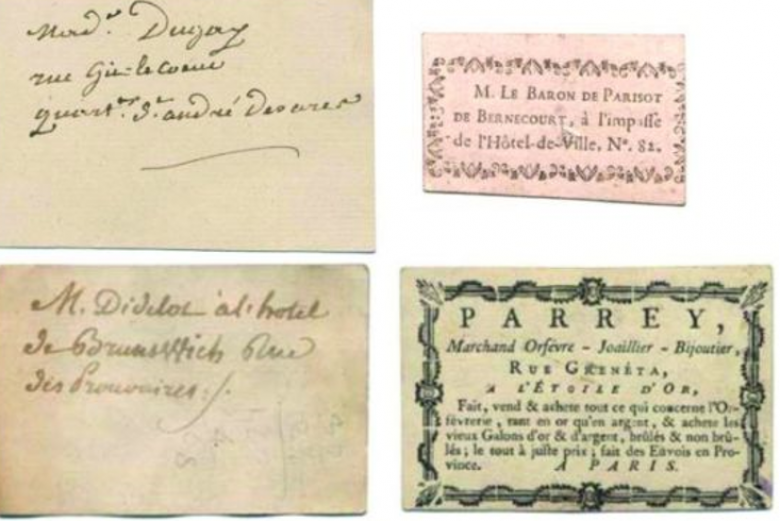 Mad.e Dugay
rue Git-le coeur
quart.er S.t andré Desarcs
M. LE BARON DE PARISOT
DE BERNECOURT, à l'impasse
de l'Hôtel-de-Ville, N°. 82.
M. Didelot à l'hotel
de Brunswich Rue
des Prouvaires
PARREY,
Marchand Orfévre - Joaillier - Bijoutier,
RUE GRENÉTA,
A L'ÉTOILE D'OR,
Fait, vend & achete tout ce qui concerne l'Or-
févrerie, tant en or qu'en argent, & achete les
vieux Galons d'or & d'argent, brûlés & non brû-
lés; le tout à juste prix; fait des Envois en Pro-
vince. A PARIS.